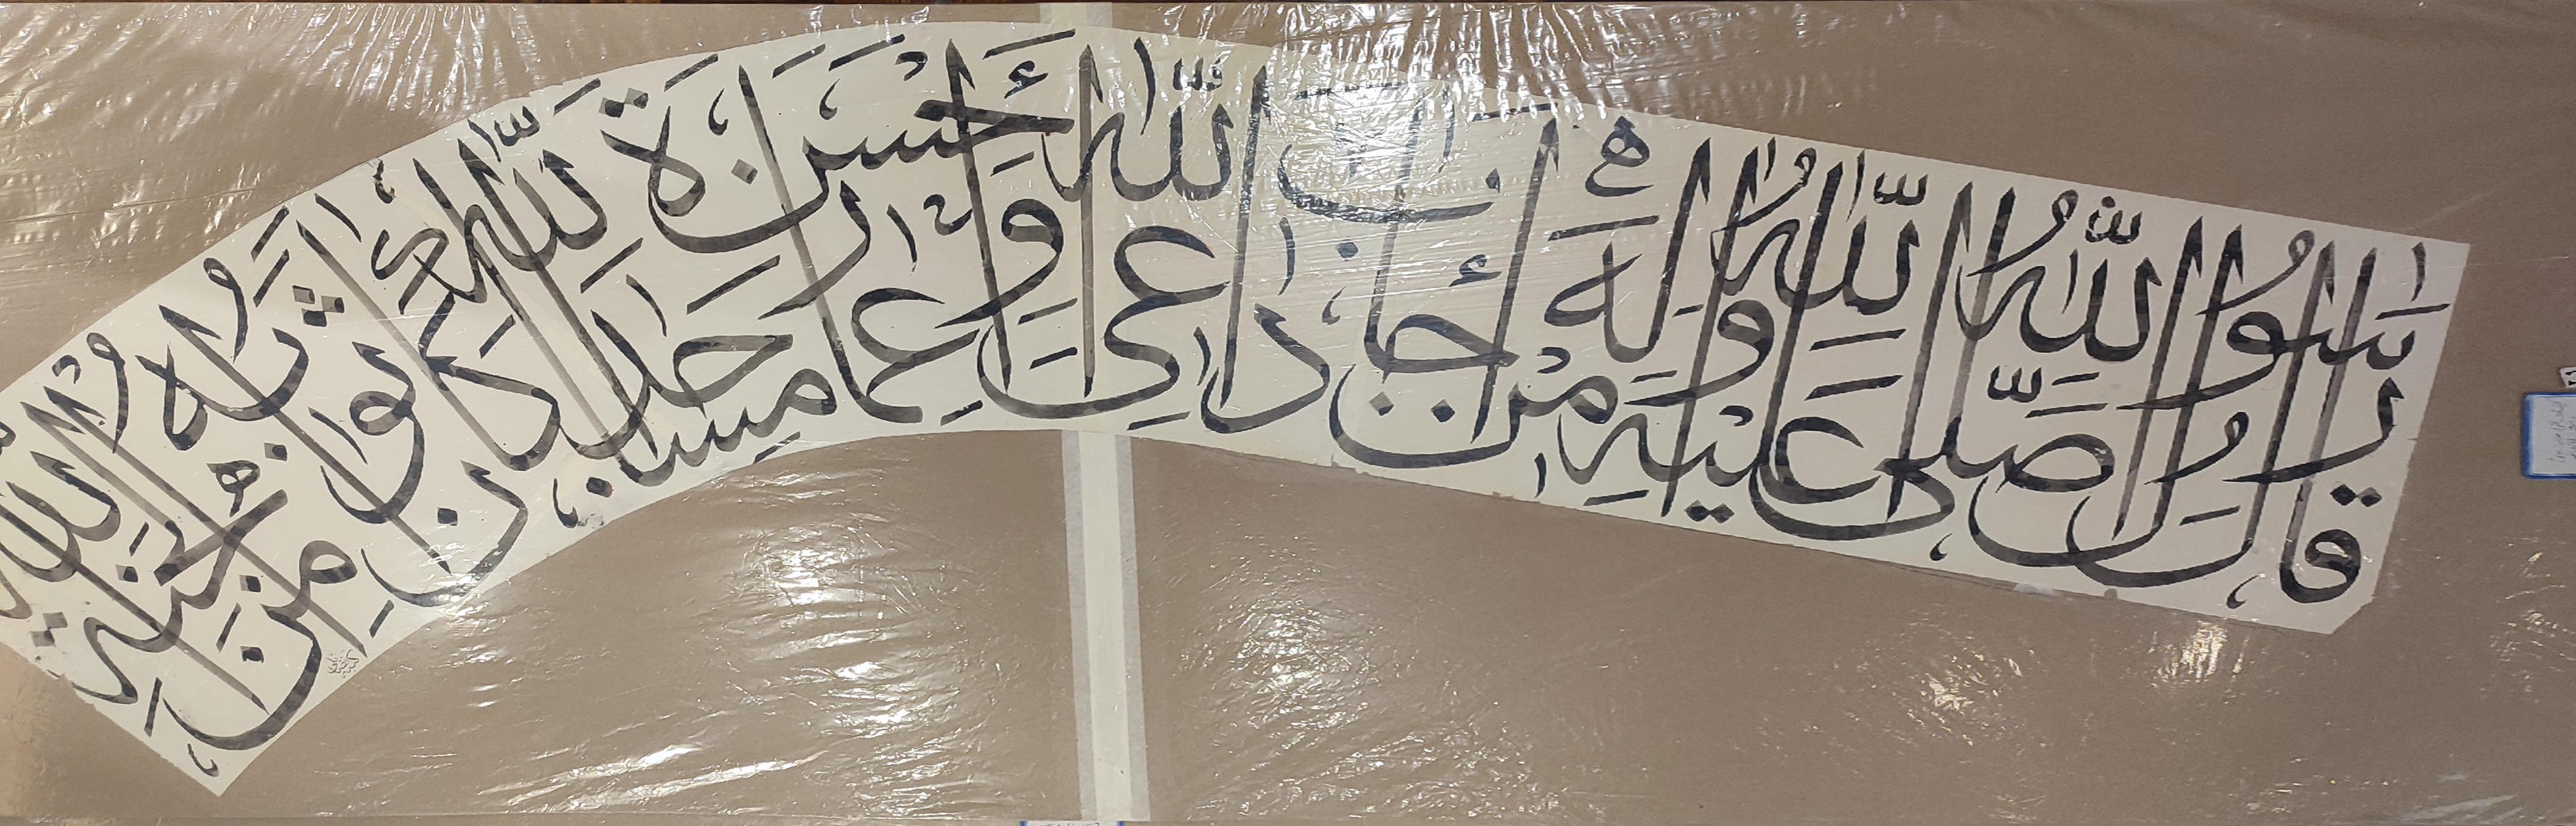 قال رسول الله صلى الله عليه وآله من أجاب داعي الله وأحسن عمارة مساجد الله كان ثوابه من الله الجنة